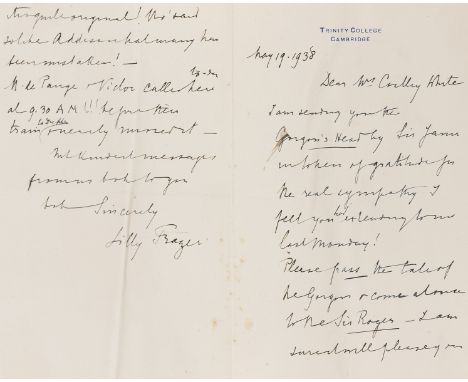 TRINITY COLLEGE
CAMBRIDGE
May 19 - 1938
Dear Mrs
I am sending you the
Gorgon's Head by Sir James
in token of gratitude for
the real sympathy I
felt you extending to me
last Monday!
Please pass the tale of
the Gorgon & come at once
to the Sir Roger - I am
sure it will please you
original! He said
so the Address & that many have
been mistaken! -
M. de Pange & Victor called here
at 9.30 A.M!!! he put them
train & nearly missed it -
kindest messages
from us both to you
both Sincerely
Lilly Frazer